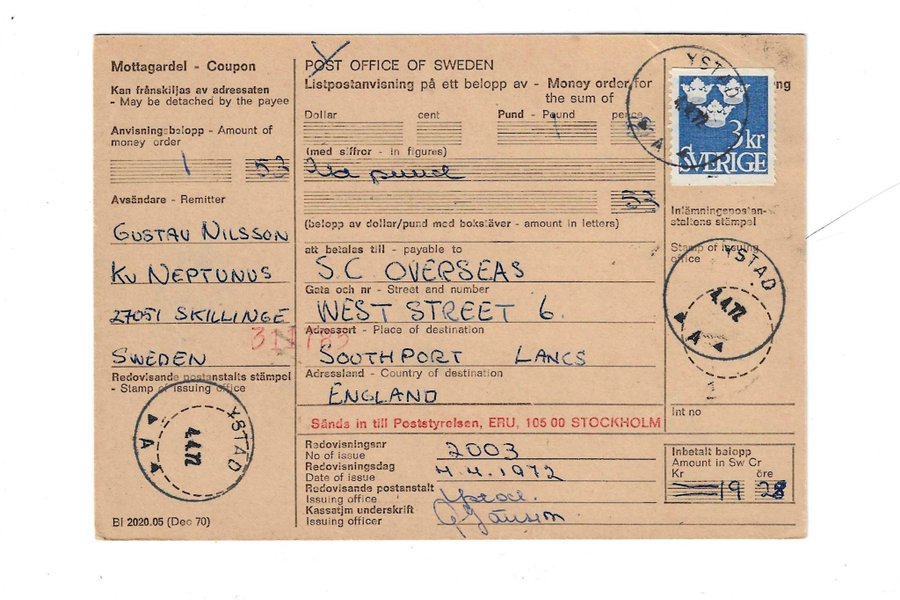 Mottagardel - Coupon
Kan frånskiljas av adressaten
- May be detached by the payee
Anvisningsbelopp - Amount of
money order
1 53
Avsändare - Remitter
GUSTAV NILSSON
KV NEPTUNUS
27051 SKILLINGE
SWEDEN
Redovisande postanstalts stämpel
- Stamp of issuing office
YSTAD
4.4.72
A
BI 2020.05 (Dec 70)
POST OFFICE OF SWEDEN
Listpostanvisning på ett belopp av - Money order for
the sum of
Dollar cent Pund - Pound pence
1
(med siffror - in figures)
53
(belopp av dollar/pund med bokstäver - amount in letters)
att betalas till - payable to
S.C OVERSEAS
Gata och nr - Street and number
WEST STREET 6.
Adressort - Place of destination
SOUTHPORT LANCS
Adressland - Country of destination
ENGLAND
Sänds in till Poststyrelsen, ERU, 105 00 STOCKHOLM
Redovisningsnr
No of issue 2003
Redovisningsdag
Date of issue 4.4.1972
Redovisande postanstalt
Issuing office Ystad.
Kassatjm underskrift
Issuing officer
YSTAD
4.4.72
A
3 kr
SVERIGE
Inlämningspostan-
staltens stämpel
Stamp of issuing
office
YSTAD
4.4.72
A
1
Int no
Inbetalt belopp
Amount in Sw Cr
Kr öre
19 28